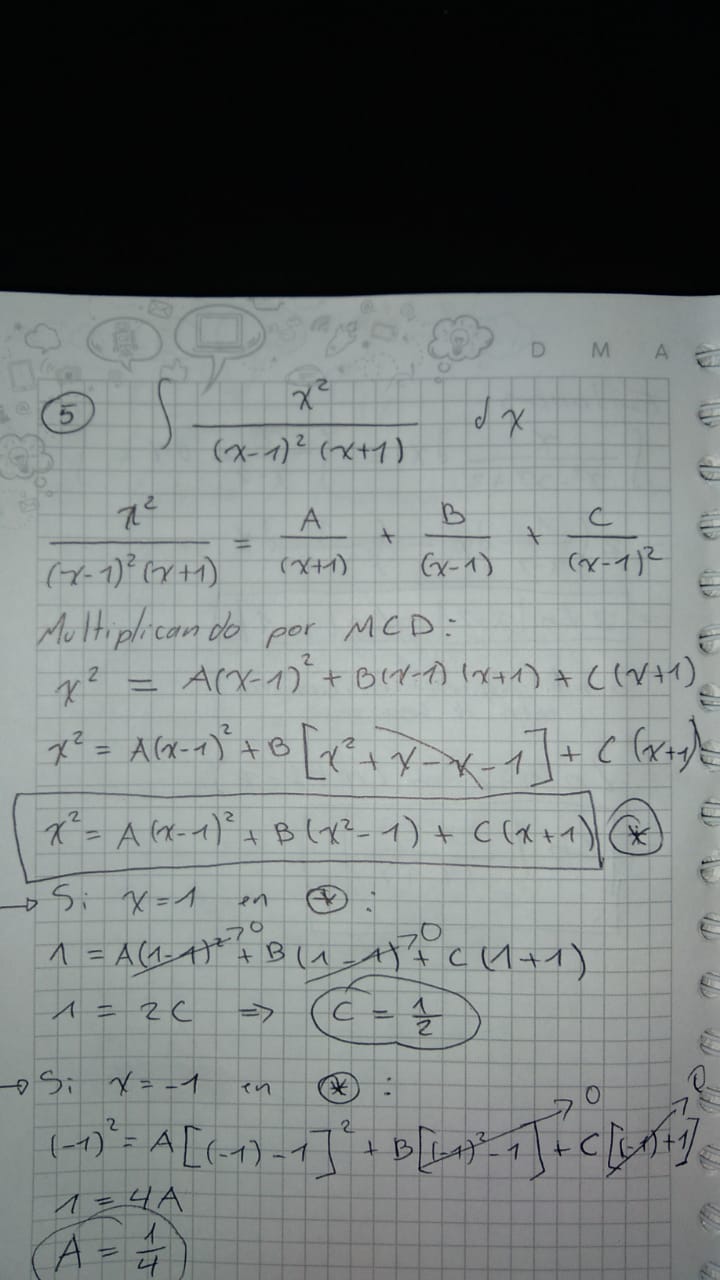 D M A
5 ∫ x² / (x-1)² (x+1) dx
x² / (x-1)² (x+1) = A / (x+1) + B / (x-1) + C / (x-1)²
Multiplicando por MCD:
x² = A(x-1)² + B(x-1)(x+1) + C(x+1)
x² = A(x-1)² + B[x² + x - x - 1] + C(x+1)
x² = A(x-1)² + B(x²-1) + C(x+1) *
→ Si x=1 en * :
1 = A(1-1)²→0 + B(1-1)→0 + C(1+1)
1 = 2C => C = 1/2
→ Si x=-1 en * :
(-1)² = A[(-1)-1]² + B[(-1)²-1]→0 + C[(-1)+1]→0
1 = 4A
A = 1/4